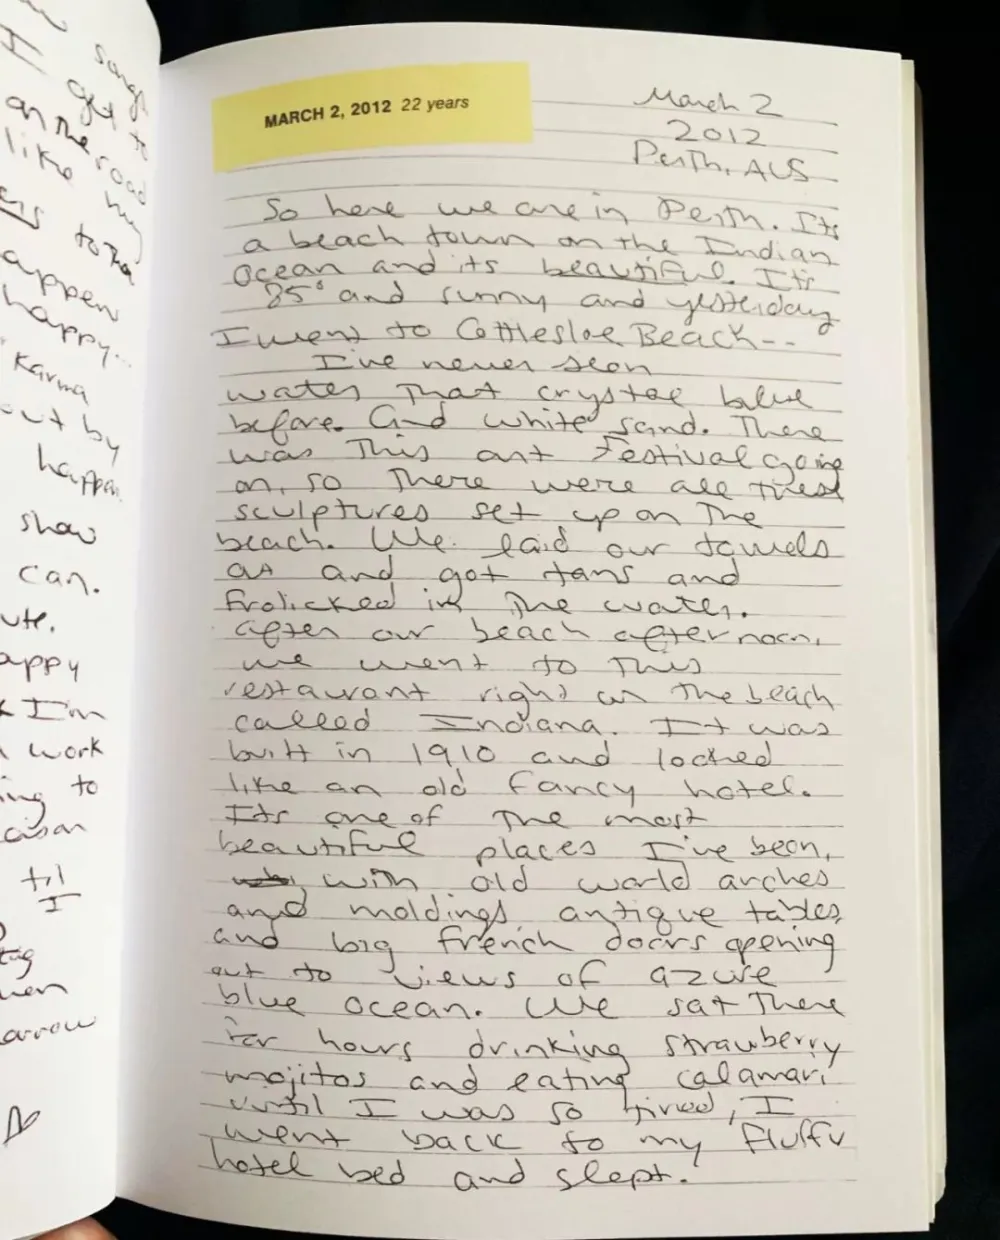 song
I get to
on the road
like my
ers to the
appen
happy...
Karma
out by
happen
show
can.
ute.
appy
I'm
work
ing to
eason
til
I
tag
when
arrow
MARCH 2, 2012 22 years
March 2
2012
Perth, AUS
So here we are in Perth. Its
a beach town on the Indian
Ocean and its beautiful. It's
85° and sunny and yesterday
I went to Cottesloe Beach--
I've never seen
water that crystal blue
before. And white sand. There
was this art festival going
on, so there were all these
sculptures set up on the
beach. We laid our towels
out and got tans and
frolicked in the water.
After our beach afternoon,
we went to this
restaurant right on the beach
called Indiana. It was
built in 1910 and looked
like an old fancy hotel.
Its one of the most
beautiful places I've been,
with old world arches
and moldings antique tables,
and big french doors opening
out to views of azure
blue ocean. We sat there
for hours drinking strawberry
mojitos and eating calamari
until I was so tired, I
went back to my fluffy
hotel bed and slept.